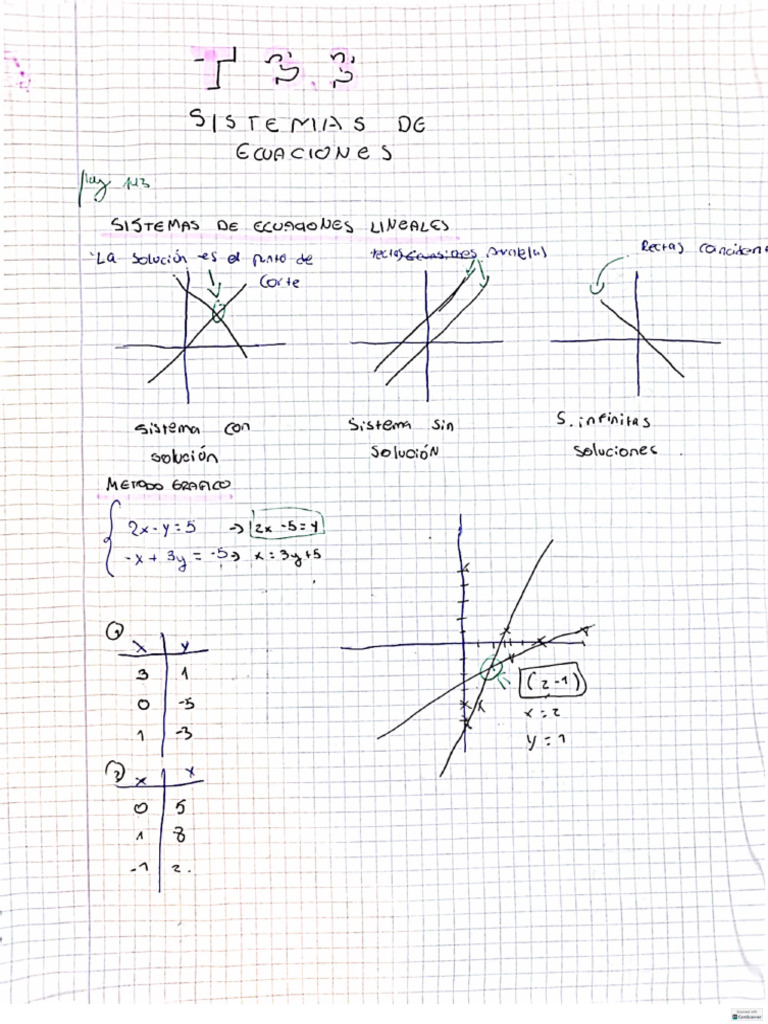 T 3.3
SISTEMAS DE
ECUACIONES
pag 113
SISTEMAS DE ECUACIONES LINEALES
La solución es el punto de
corte
rectas paralelas
Rectas coinciden
Sistema con
solución
Sistema sin
solución
S. infinitas
soluciones.
METODO GRAFICO
2x-y=5 → 2x-5=y
-x+3y=-5 → x=3y+5
1
x y
3 1
0 -5
1 -3
2
x y
0 5
1 8
-1 2
(2-1)
x=2
y=1